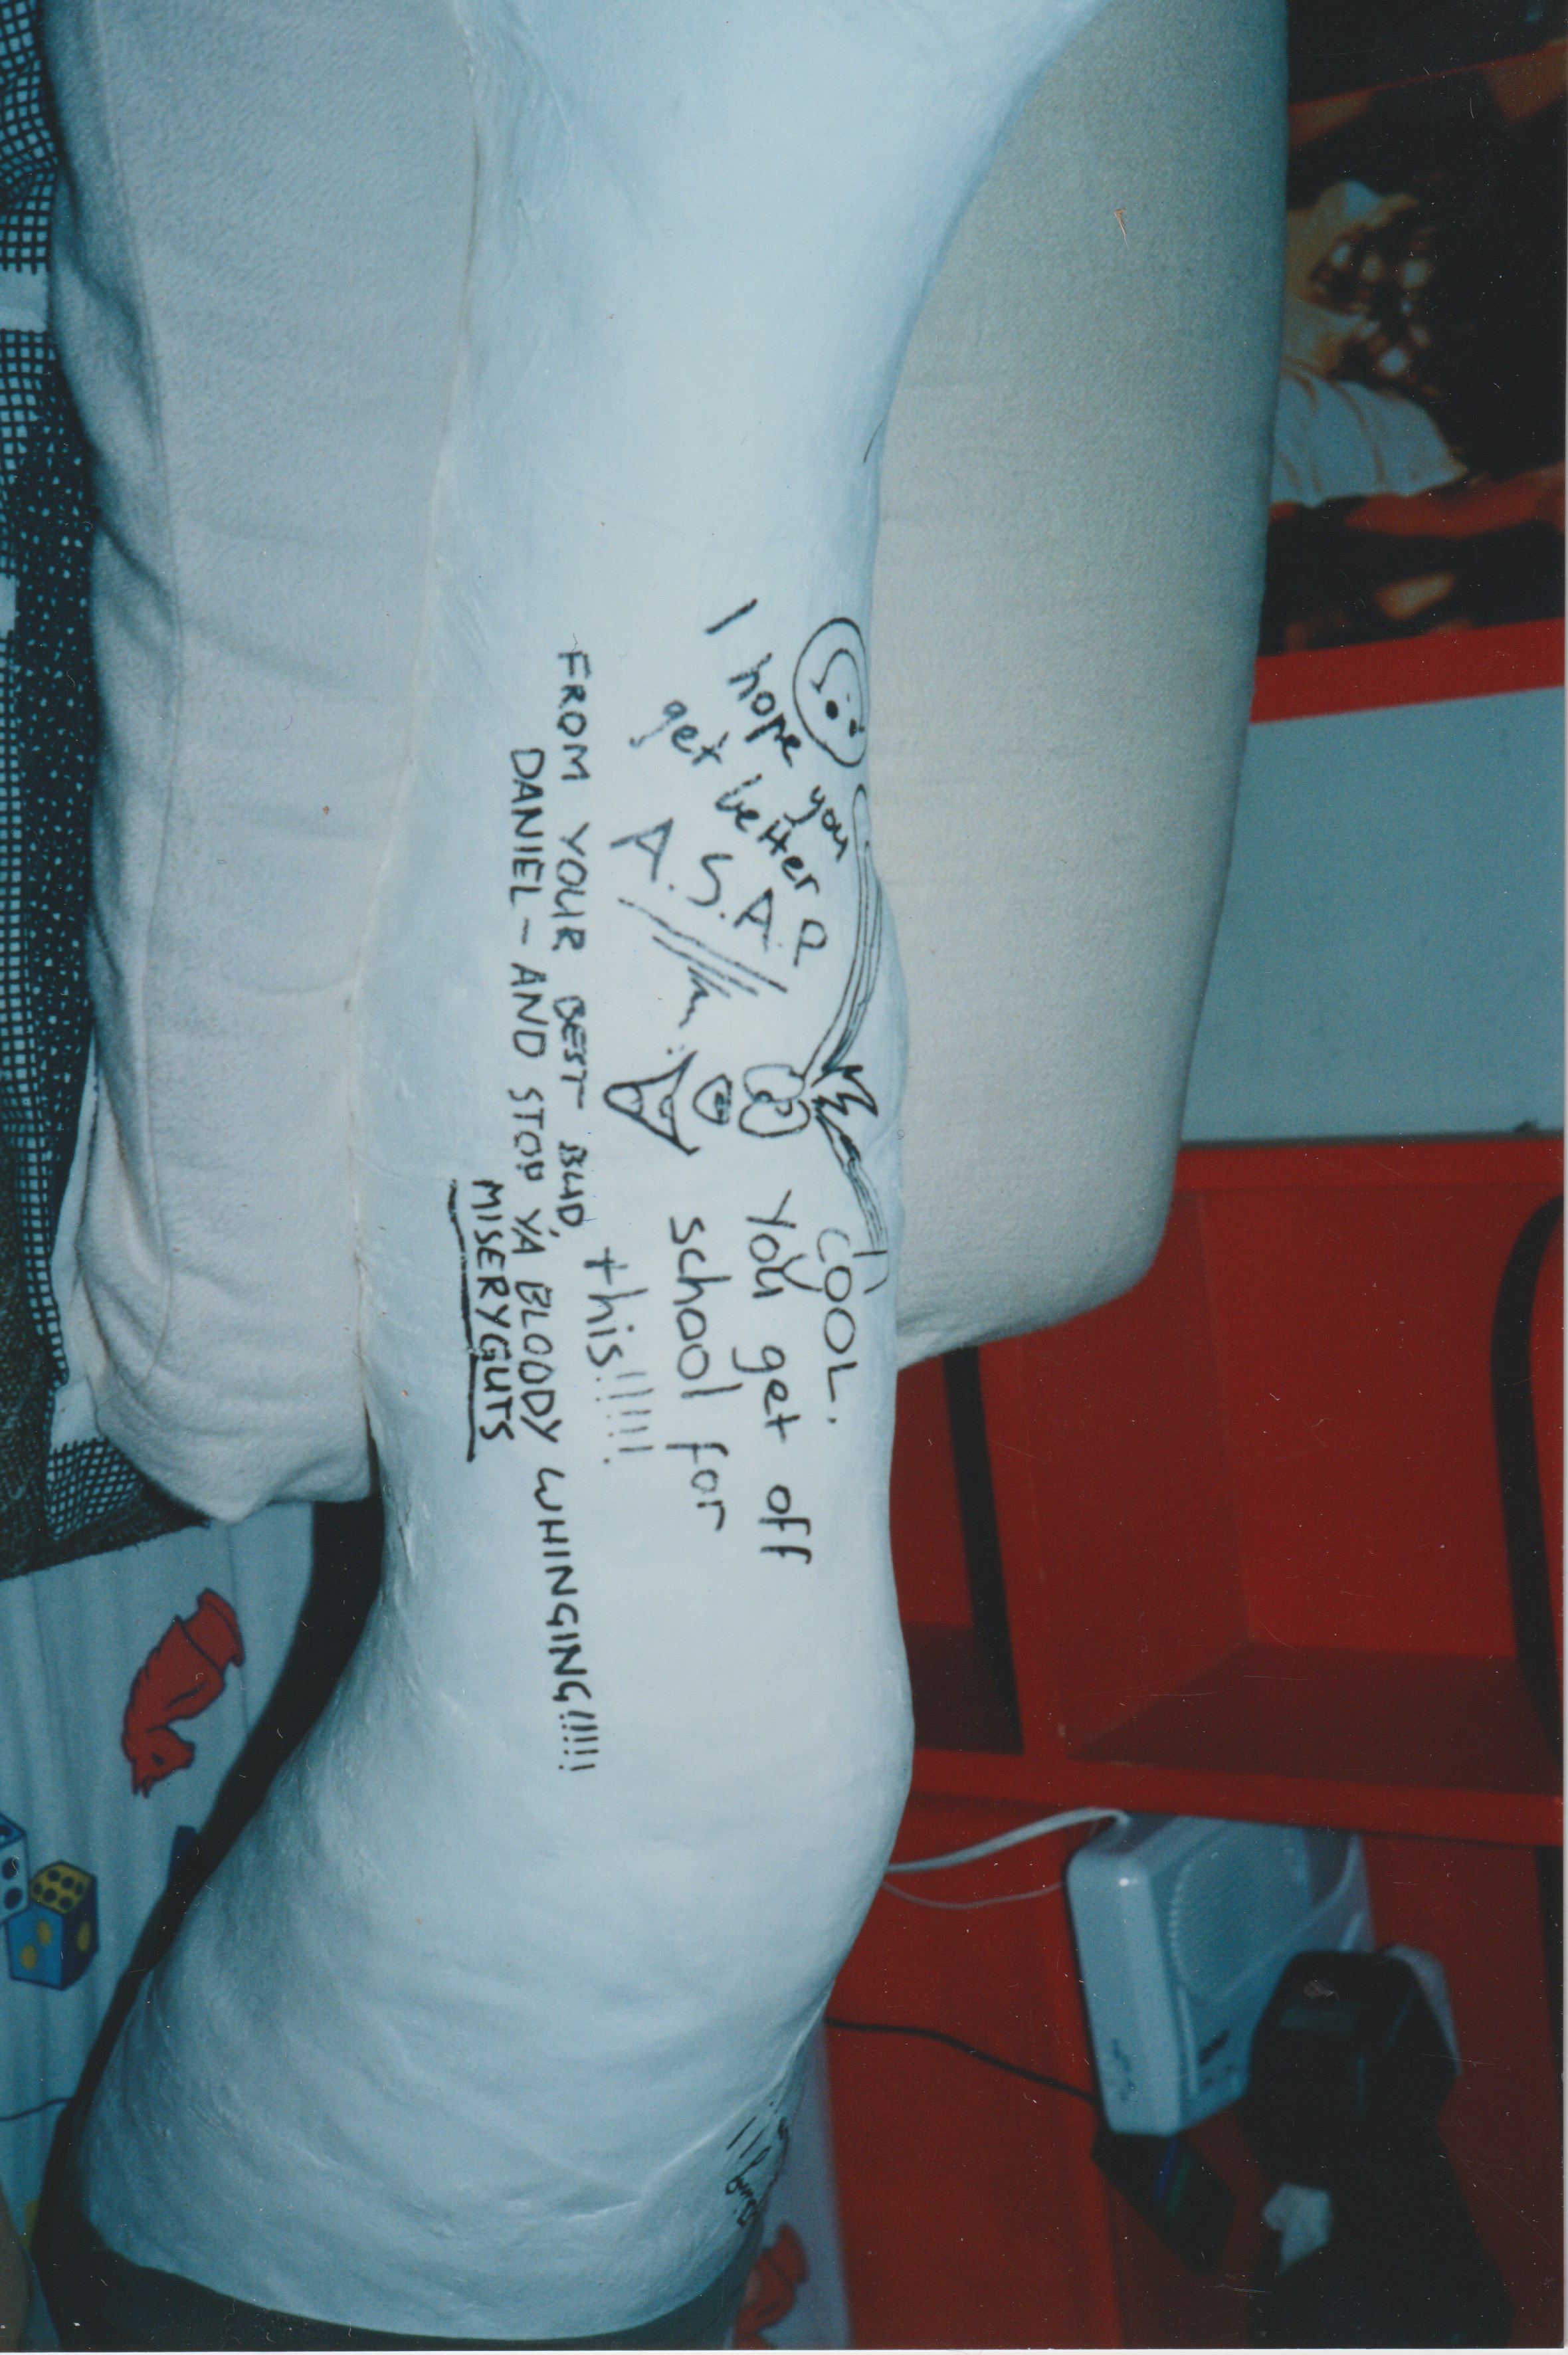 I hope you
get better
A.S.A.P
COOL.
You get off
school for
this!!!!!!
FROM YOUR BEST BUD,
DANIEL - AND STOP YA BLOODY WHINGING!!!!!
MISERYGUTS